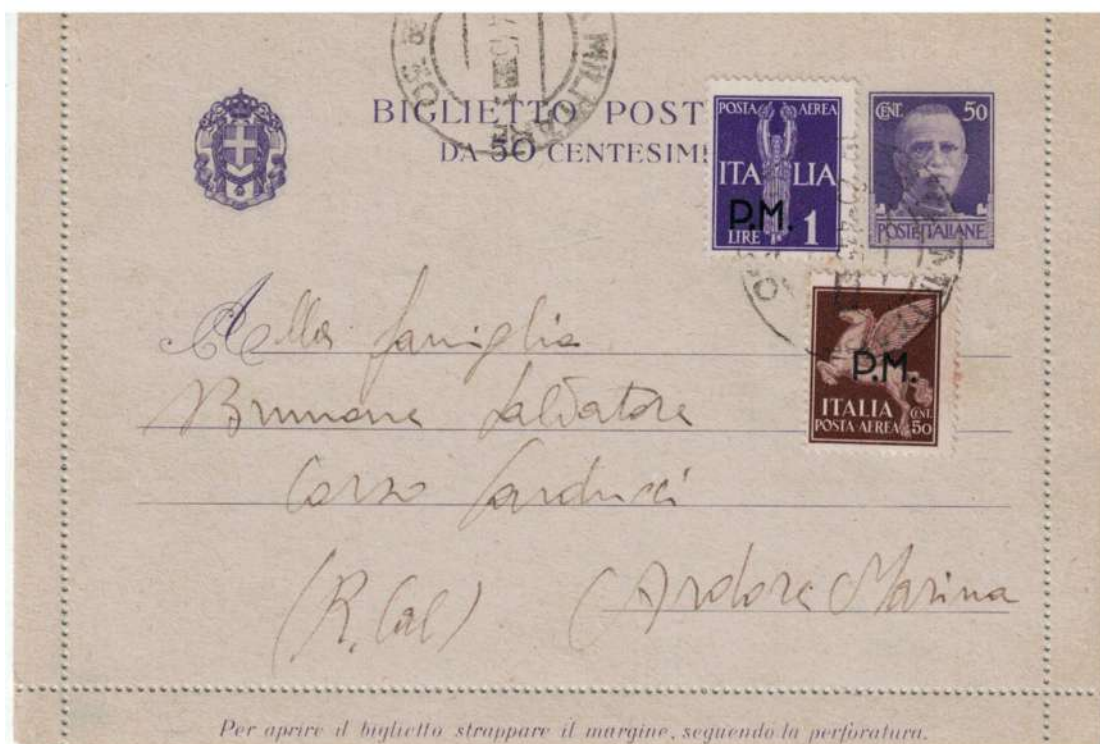 BIGLIETTO POST
DA 50 CENTESIMI
POSTA AEREA
ITALIA
P.M.
LIRE 1
CENT. 50
POSTE ITALIANE
P.M.
ITALIA
POSTA AEREA CENT. 50
Alla famiglia
Brunone Salvatore
Corso Carducci
(R. Cal) Ardore Marina
Per aprire il biglietto strappare il margine, seguendo la perforatura.